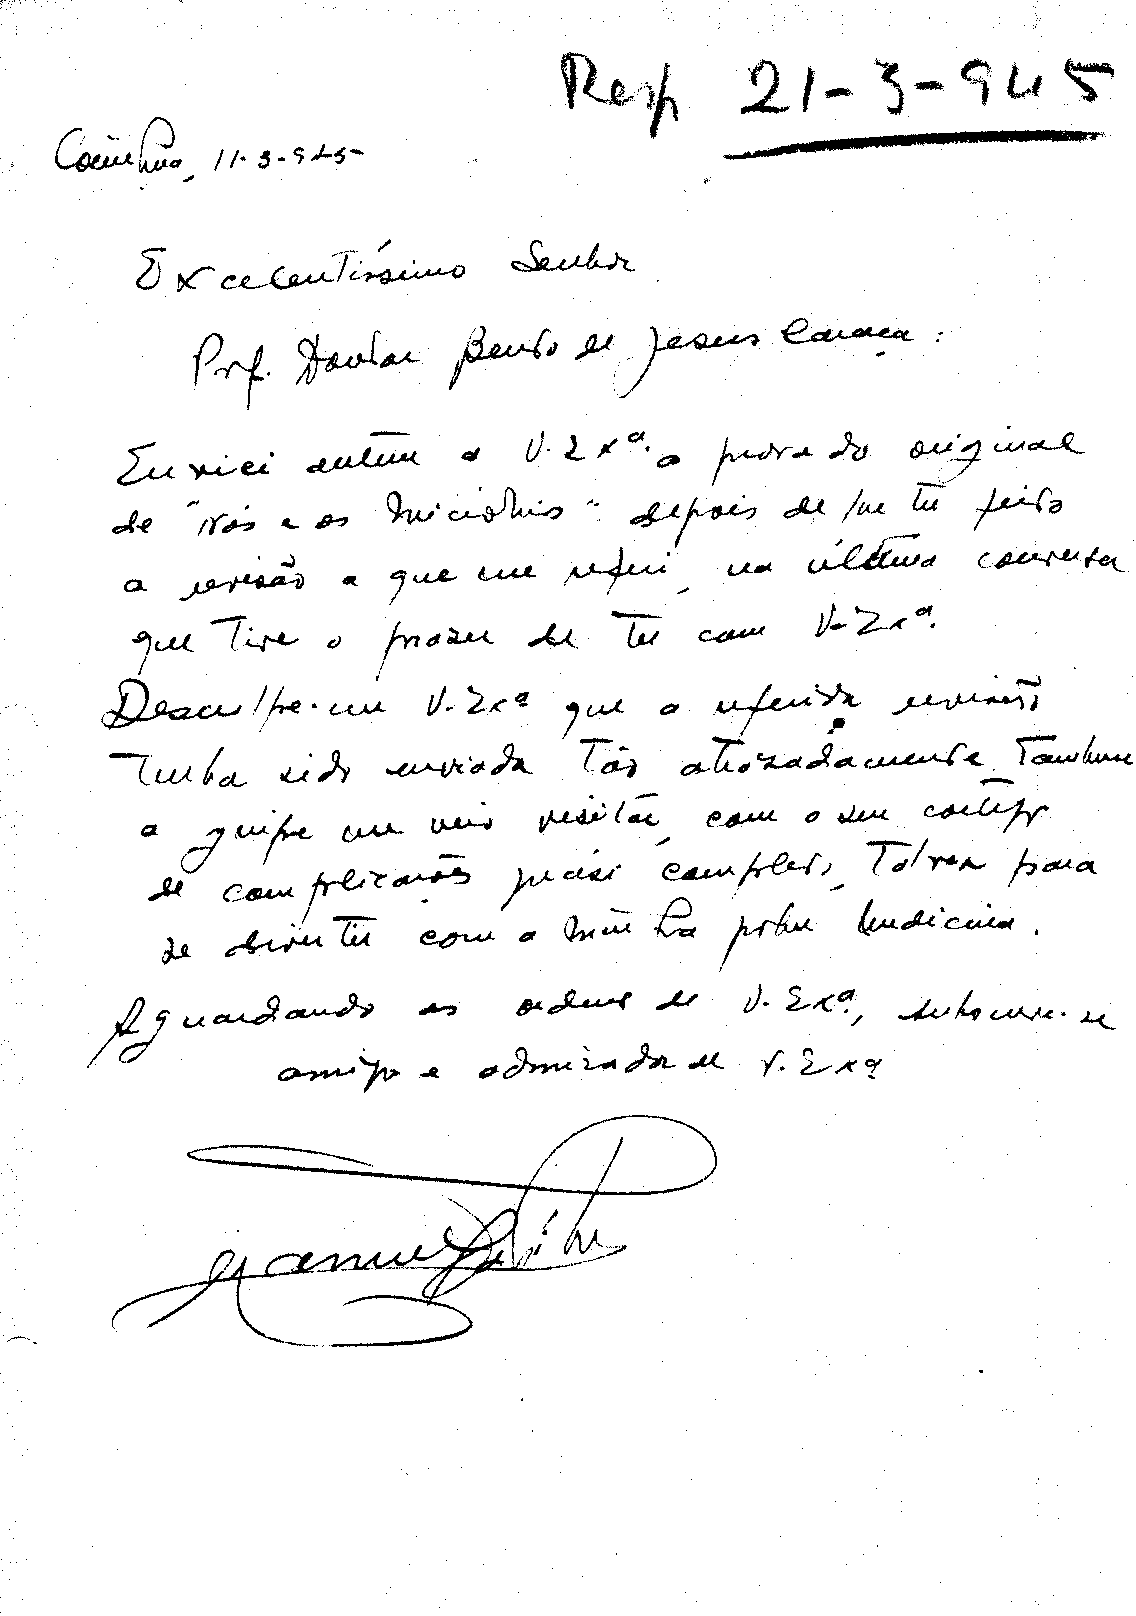 Resp 21-3-945
Coimbra, 11-3-945
Excelentíssimo Senhor
Prof. Doutor Bento de Jesus Caraça:
Enviei ontem a V. Exª. a prova do original
de "Nós e os Micróbios" depois de lhe ter feito
a revisão a que me referi, na última conversa
que tive o prazer de ter com V. Exª.
Desculpe-me V. Exª que a referida revisão
tenha sido enviada tão atrasadamente. Também
a gripe me veio visitar, com o seu cortejo
de complicações quási completo, talvez para
se divertir com a minha pobre medicina.
Aguardando as ordens de V. Exª., subscreve-se
amigo e admirador de V. Exª
Manuel